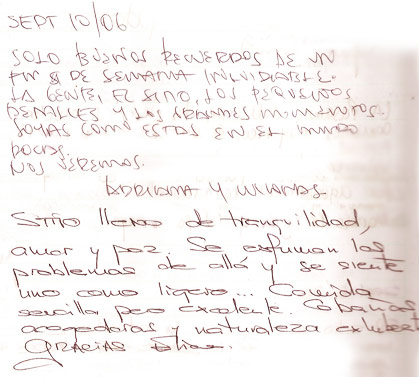 SEPT 10/06
SOLO BUENOS RECUERDOS DE UN
FIN DE SEMANA INOLVIDABLE.
LA GENTE, EL SITIO, LOS PEQUEÑOS
DETALLES Y LOS GRANDES MOMENTOS.
JOYAS COMO ESTAS EN EL MUNDO
POCAS.
NOS VEREMOS.
ADRIANA Y
Sitio lleno de tranquilidad,
amor y paz. Se esfuman los
problemas de allá y se siente
uno como ligero... Comida
sencilla pero excelente. Cabañas
acogedoras y naturaleza
GRACIAS